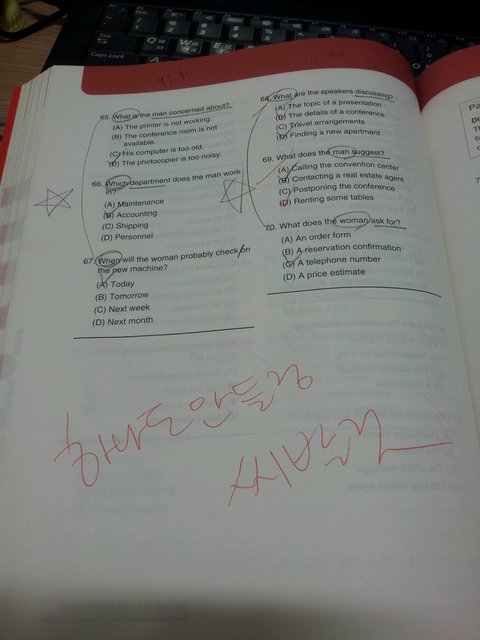 65. What is the man concerned about?
(A) The printer is not working.
(B) The conference room is not
available.
(C) His computer is too old.
(D) The photocopier is too noisy.
66. Which department does the man work
in?
(A) Maintenance
(B) Accounting
(C) Shipping
(D) Personnel
67. When will the woman probably check on
the new machine?
(A) Today
(B) Tomorrow
(C) Next week
(D) Next month
68. What are the speakers discussing?
(A) The topic of a presentation
(B) The details of a conference
(C) Travel arrangements
(D) Finding a new apartment
69. What does the man suggest?
(A) Calling the convention center
(B) Contacting a real estate agent
(C) Postponing the conference
(D) Renting some tables
70. What does the woman ask for?
(A) An order form
(B) A reservation confirmation
(C) A telephone number
(D) A price estimate
하나도 안들려